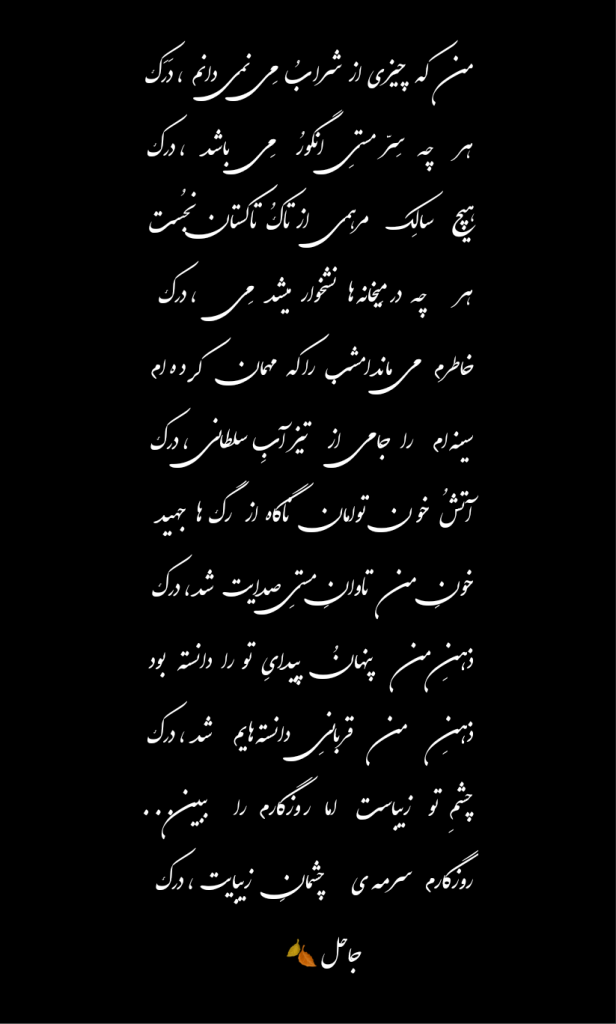 من که چیزی از شرابُ مِی نمی دانم ، دَرَک
هر چه سِرّ مستیِ انگورُ مِی باشد ، درک
هیچ سالِک مرهمی از تاکُ تاکستان نجُست
هر چه در میخانه‌ها نشخوار میشد مِی ، درک
خاطرم می ماندامشب را که مهمان کرده ام
سینه‌ام را جامی از تیزآبِ سلطانی ، درک
آتشُ خون توامان ناگاه از رگ ها جهید
خونِ من تاوانِ مستیِ صدایت شد، درک
ذهنِ من پنهانُ پیدایِ تو را دانسته بود
ذهنِ من قربانیِ دانسته‌هایم شد ، درک
چشمِ تو زیباست اما روزگارم را ببین...
روزگارم سرمه‌ی چشمانِ زیبایت ، درک
جاحل 🍂